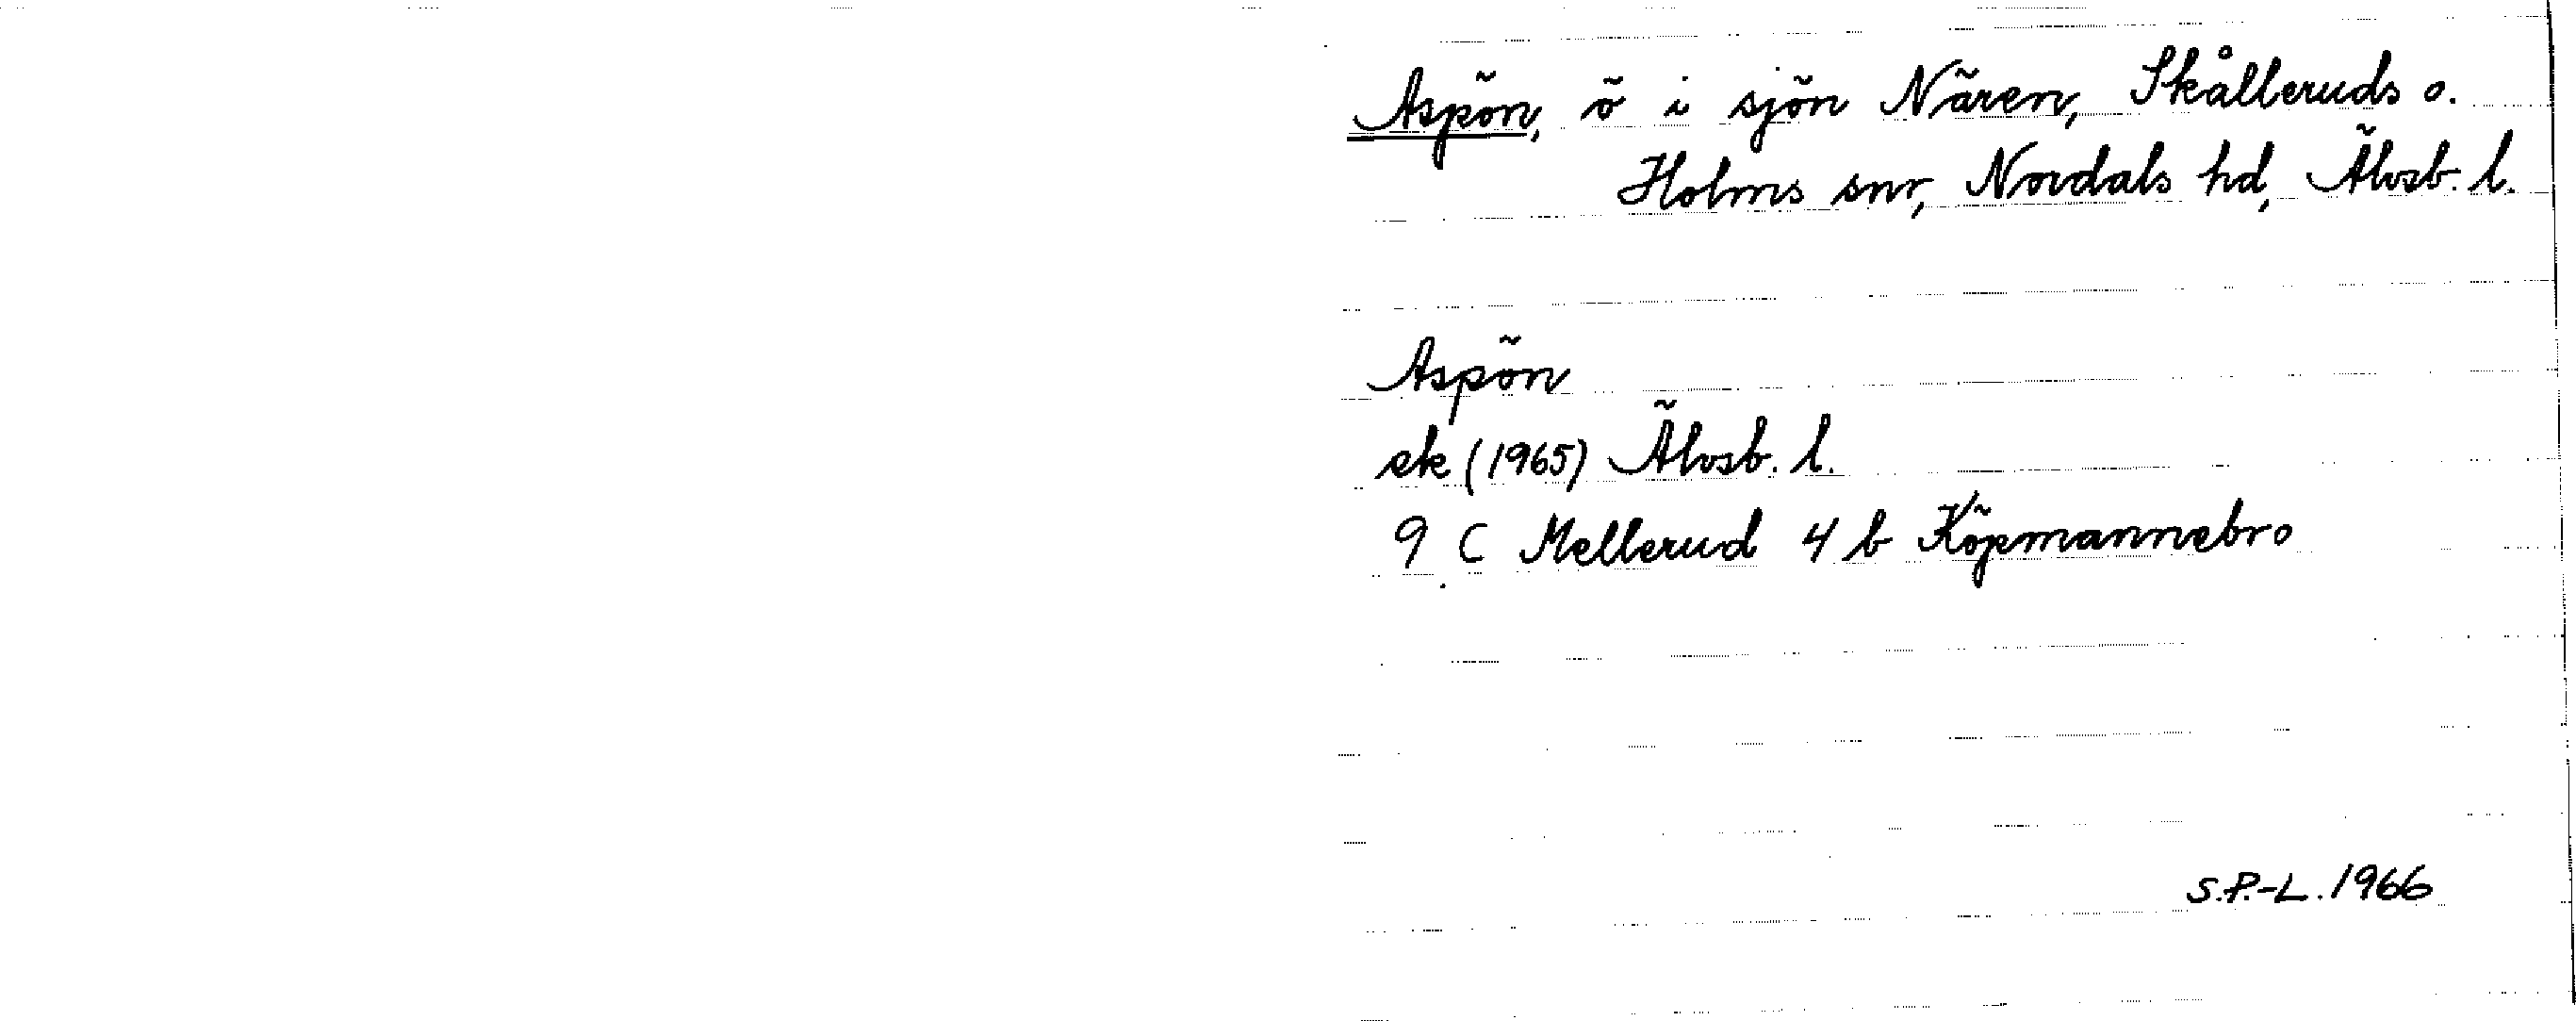 Aspön, ö i sjön Nären, Skålleruds o.
Holms snr, Nordals hd, Älvsb. l.
Aspön
ek (1965) Älvsb. l.
9 C Mellerud 4 b Köpmannebro
S.P.-L. 1966